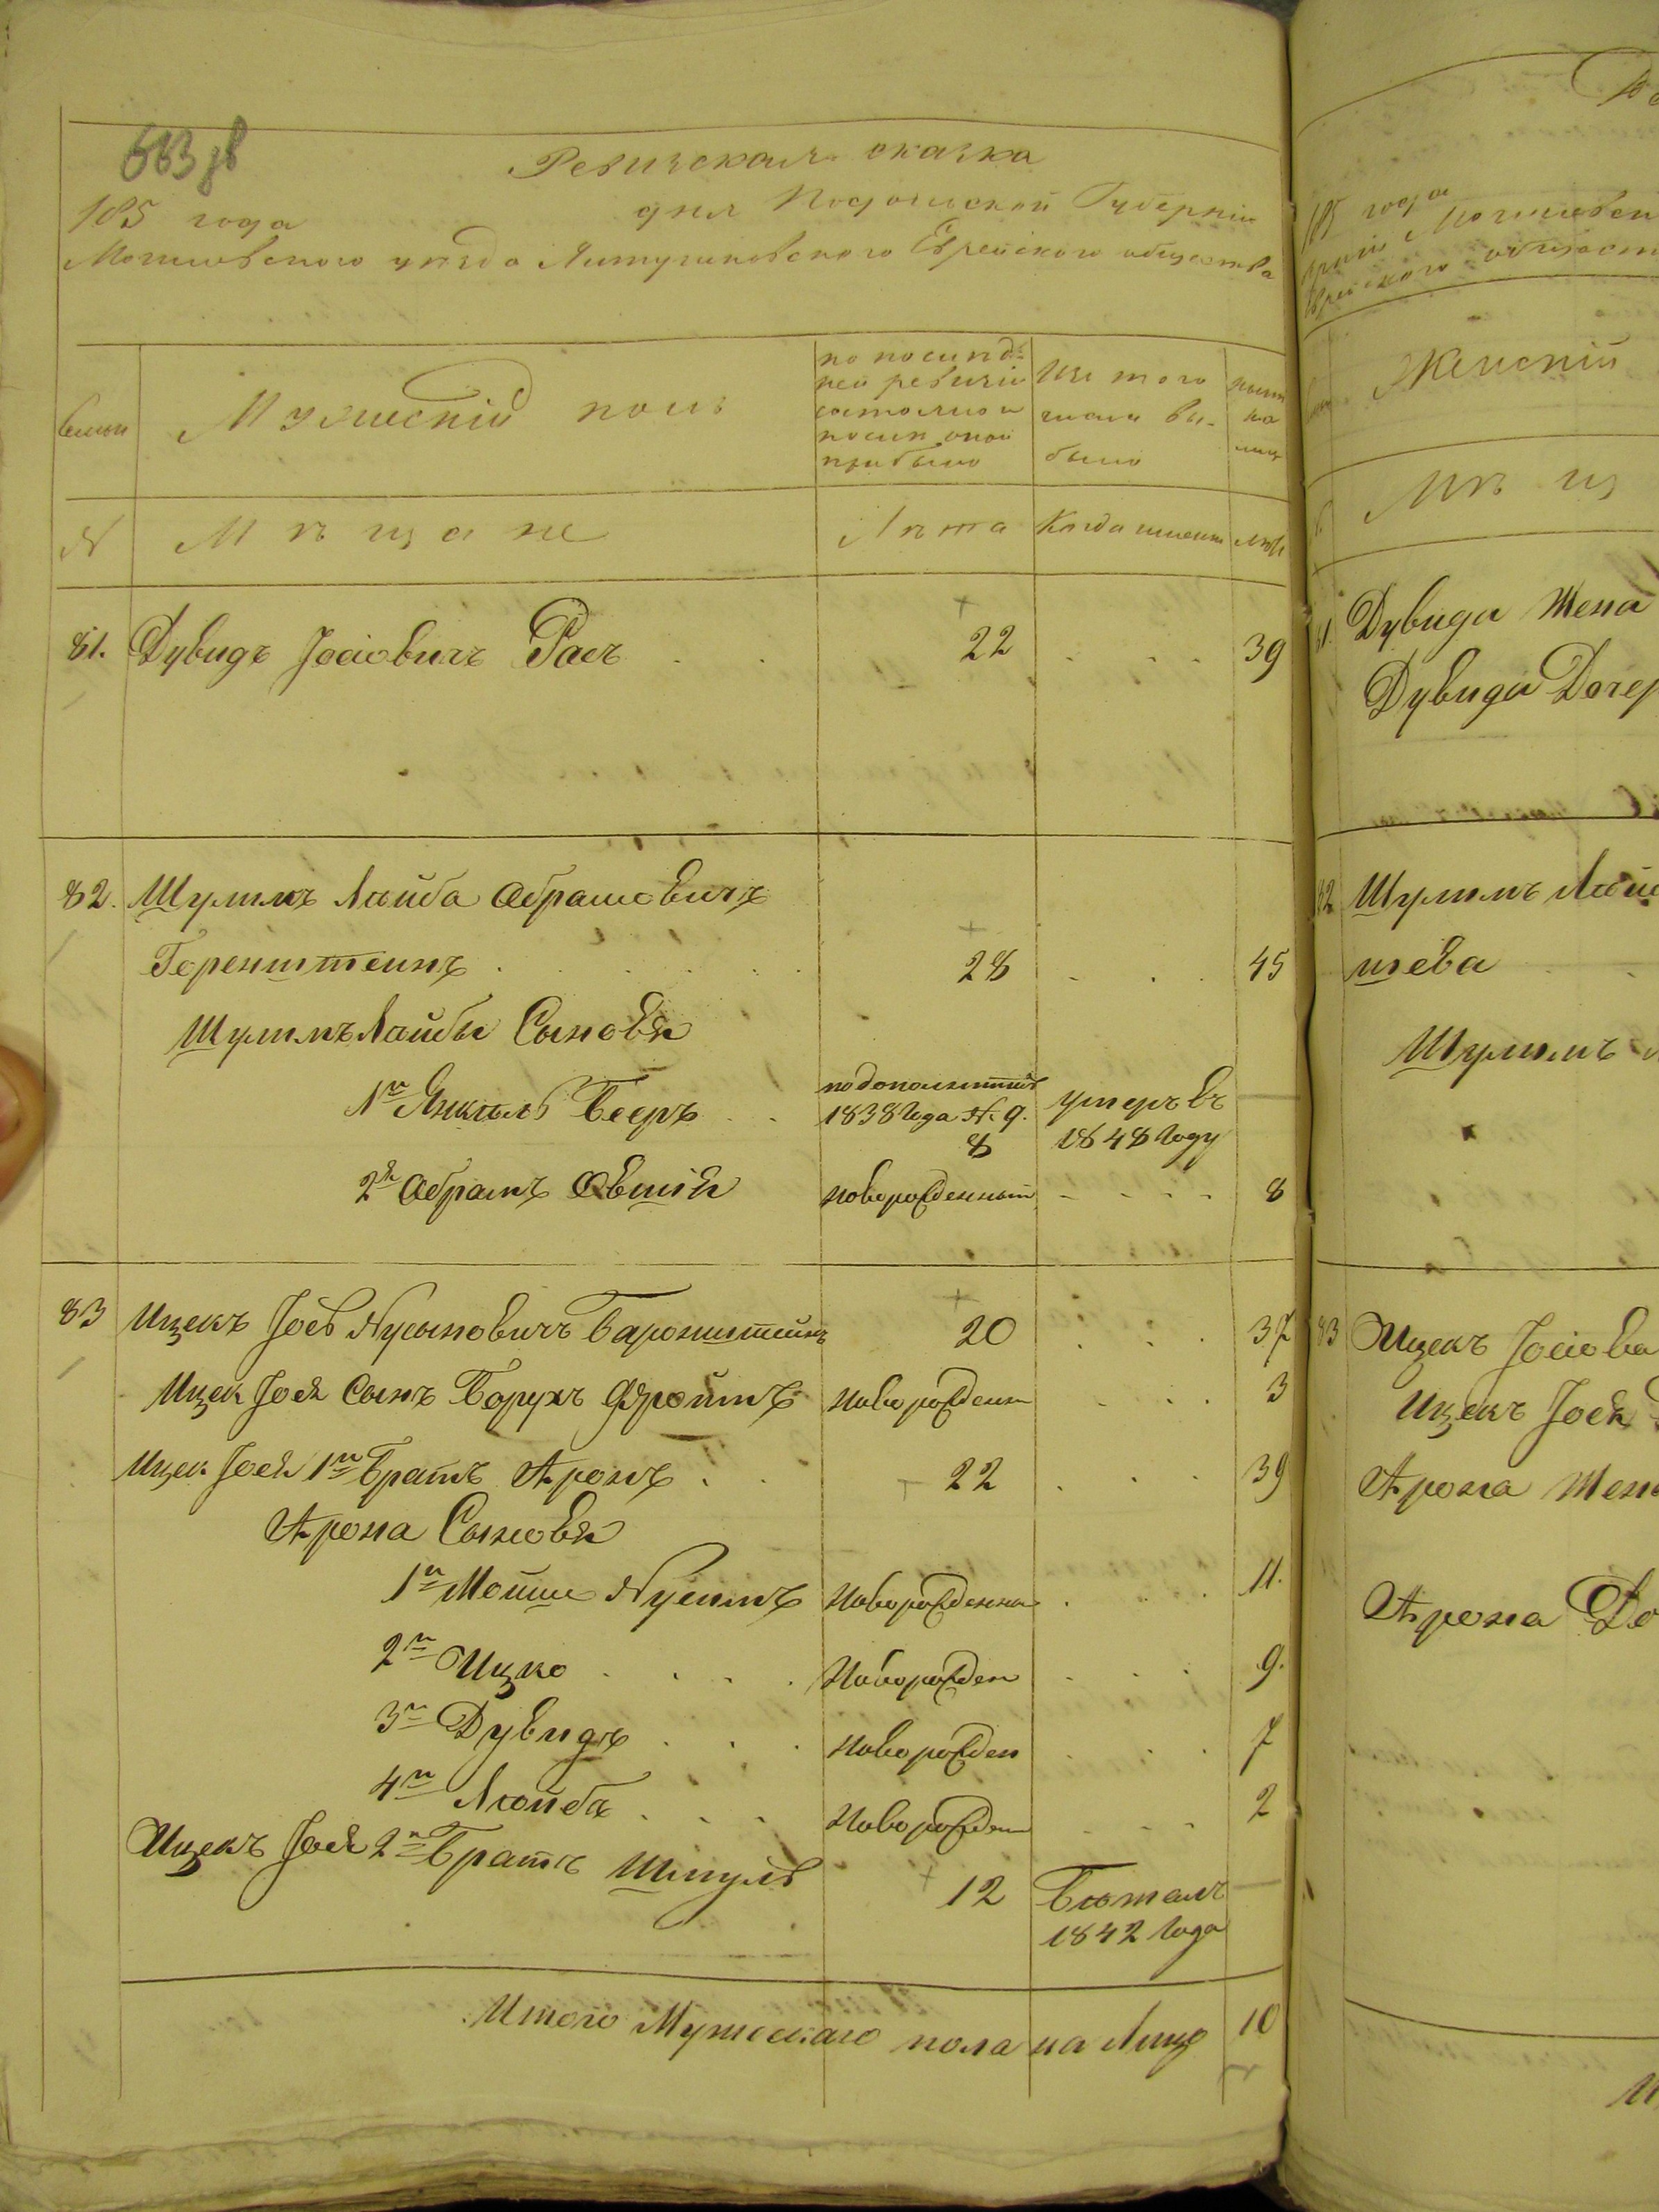 683 об
Ревизская сказка
185 года дня Подольской Губернии
Могилевского уезда Лучинецкого Еврейского общества
семьи
Мужеский полъ
по послѣд-
ней ревизіи
состояло и
послѣ оной
прибыло
Изъ того
числа вы-
было
нынѣ
на
лицо
№
Мѣщане
Лѣта
Когда именно
лѣта
81. Дувидъ Іосіовичъ Расъ 22 39
82. Шулимъ Лейба Абрамовичъ
Горенштеинъ 28 45
Шулимъ Лейбы Сыновья
1й Янкель Бееръ
по дополнит
1838 года № 9.
8
умеръ въ
1848 году
2й Абрамъ Овшія новорожденный 8
83 Ицекъ Іось Нусыновичъ Баронштейнъ 20 37
Ицек Іося Сынъ Борухъ Фроимъ новорожден 3
Ицек Іося 1й Братъ Аронъ 22 39
Арона Сыновья
1й Мошие Нусинъ Новорожденна 11.
2й Ицко Новорожден 9.
3й Дувидъ новорожден 7
4й Лейба Новорожден 2
Ицекъ Іося 2й Братъ Шмуль 12 Бюталъ
1842 года
Итого Мужескаго пола на Лицо 10
185 года Могилевск
Еврейского общест
Женскій
Мѣщ
81. Дувида Жена
Дувида Дочер
82 Шулимъ Лей
шева
Шулимъ
83 Ицекъ Іосіова
Ицекъ Іося
Арона Жен
Арона До